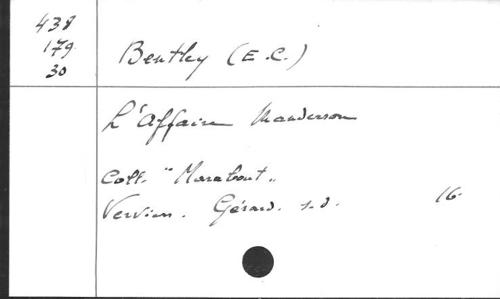 438
179
30
Bentley (E.C.)
L'Affaire Manderson
Coll. "Marabout"
Verviers. Gérard. s.d. 16